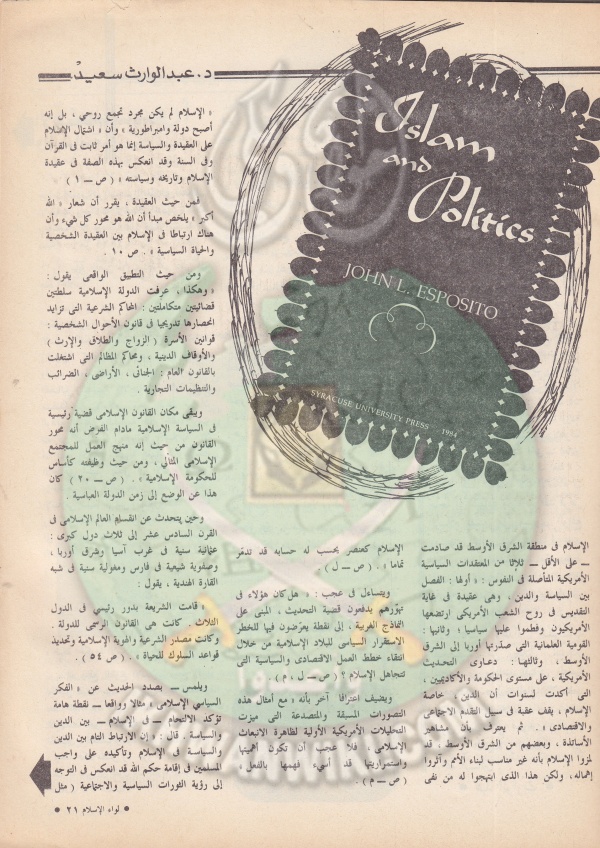 د. عبدالوارث سعيد
Islam
and
Politics
JOHN L. ESPOSITO
SYRACUSE UNIVERSITY PRESS 1984
الإسلام فى منطقة الشرق الأوسط قد صادمت
ــ على الأقل ــ ثلاثا من المعتقدات السياسية
الأمريكية المتأصلة فى النفوس : « أولها : الفصل
بين السياسة والدين ، وهى عقيدة فى غاية
التقديس فى روح الشعب الأمريكى ارتضعها
الأمريكيون وفطموا عليها سياسيا ؛ وثانيها :
القومية العلمانية التى صدّرتها أوربا إلى الشرق
الأوسط ، وثالثهما : دعاوى التحديث
الأمريكية ، على مستوى الحكومة والأكاديميين ،
التى أكدت لسنوات أن الدين ، خاصة
الإسلام ، يقف عقبة فى سبيل التقدم الاجتماعى
والاقتصادى » . ثم يعترف بأن مشاهير
الأساتذة ، وبعضهم من الشرق الأوسط ، قد
لمزوا الإسلام بأنه غير مناسب لبناء الأمم وآثروا
إهماله, ولكن هذا الذى ابتهجوا له من نفى
الإسلام كعنصر يحسب له حسابه قد تدمّر
تماما » . ( ص ــ ل ) .
ويتساءل فى عجب : « هل كان هؤلاء فى
تهوّرهم يدفعون قضية التحديث ، المبنى على
النماذج الغربية ، إلى نقطة يعرّضون فيها للخطر
الاستقرار السياسى للبلاد الإسلامية من خلال
انتقاء خطط العمل الاقتصادى والسياسية التى
تتجاهل الإسلام ؟ ( ص ــ ل ، م ) .
ويضيف اعترافا آخر بأنه « مع أمثال هذه
التصورات المسبقة والمتصدعة التى ميزت
التحليلات الأمريكية الأولية لظاهرة الانبعاث
الإسلامى ، فلا عجب أن تكون أهميتها
واستمراريتها قد أسىء فهمها بالفعل »
( ص ــ م ) .
« الإسلام لم يكن مجرد تجمع روحي ، بل إنه
أصبح دولة وامبراطورية » وأن « اشتمال الإسلام
على العقيدة والسياسة إنما هو أمر ثابت فى القرآن
وفى السنة وقد انعكس بهذه الصفة فى عقيدة
الإسلام وتاريخه وسياسته » ( ص ــ ١ )
فمن حيث العقيدة ، يقرر أن شعار « الله
أكبر » يلخص مبدأ أن الله هو محور كل شىء وأن
هناك ارتباطا فى الإسلام بين العقيدة الشخصية
والحياة السياسية » . ص ١٠ .
ومن حيث التطبيق الواقعى يقول :
« وهكذا ، عرفت الدولة الإسلامية سلطتين
قضائيتين متكاملتين : المحاكم الشرعية التى تزايد
انحصارها تدريجيا فى قانون الأحوال الشخصية :
قوانين الأسرة ( الزواج والطلاق والإرث )
والأوقاف الدينية ، ومحاكم المظالم التى اشتغلت
بالقانون العام : الجنائى ، الأراضى ، الضرائب
والتنظيمات التجارية .
ويبقى مكان القانون الإسلامى قضية رئيسية
فى السياسة الإسلامية مادام الفرض أنه محور
القانون من حيث إنه منهج العمل للمجتمع
الإسلامى المثالى ، ومن حيث وظيفته كأساس
للحكومة الإسلامية » . ( ص ــ ٢٠ ) كان
هذا عن الوضع إلى زمن الدولة العباسية .
وحين يتحدث عن انقسام العالم الإسلامى فى
القرن السادس عشر إلى ثلاث دول كبرى :
عثمانية سنية فى غرب آسيا وشرق أوربا ،
وصفوية شيعية فى فارس ومغولية سنية فى شبه
القارة الهندية ، يقول :
« قامت الشريعة بدور رئيسى فى الدول
الثلاث ، كانت هى القانون الرسمى للدولة .
وكانت مصدر الشرعية والهوية الإسلامية وتحديد
قواعد السلوك للحياة » . ( ص ٥٤ ) .
ويلمس ــ بصدد الحديث عن « الفكر
السياسى الإسلامى » مثالا وواقعا ــ نقطة هامة
تؤكد الالتحام ــ فى الإسلام ــ بين الدين
والسياسة ، قال : « إن الارتباط التام بين الدين
والسياسة فى الإسلام وتأكيده على واجب
المسلمين فى إقامة حكم الله قد انعكس فى التوجه
إلى رؤية الثورات السياسية والاجتماعية ( مثل
● لواء الإسلام ٢١ ●